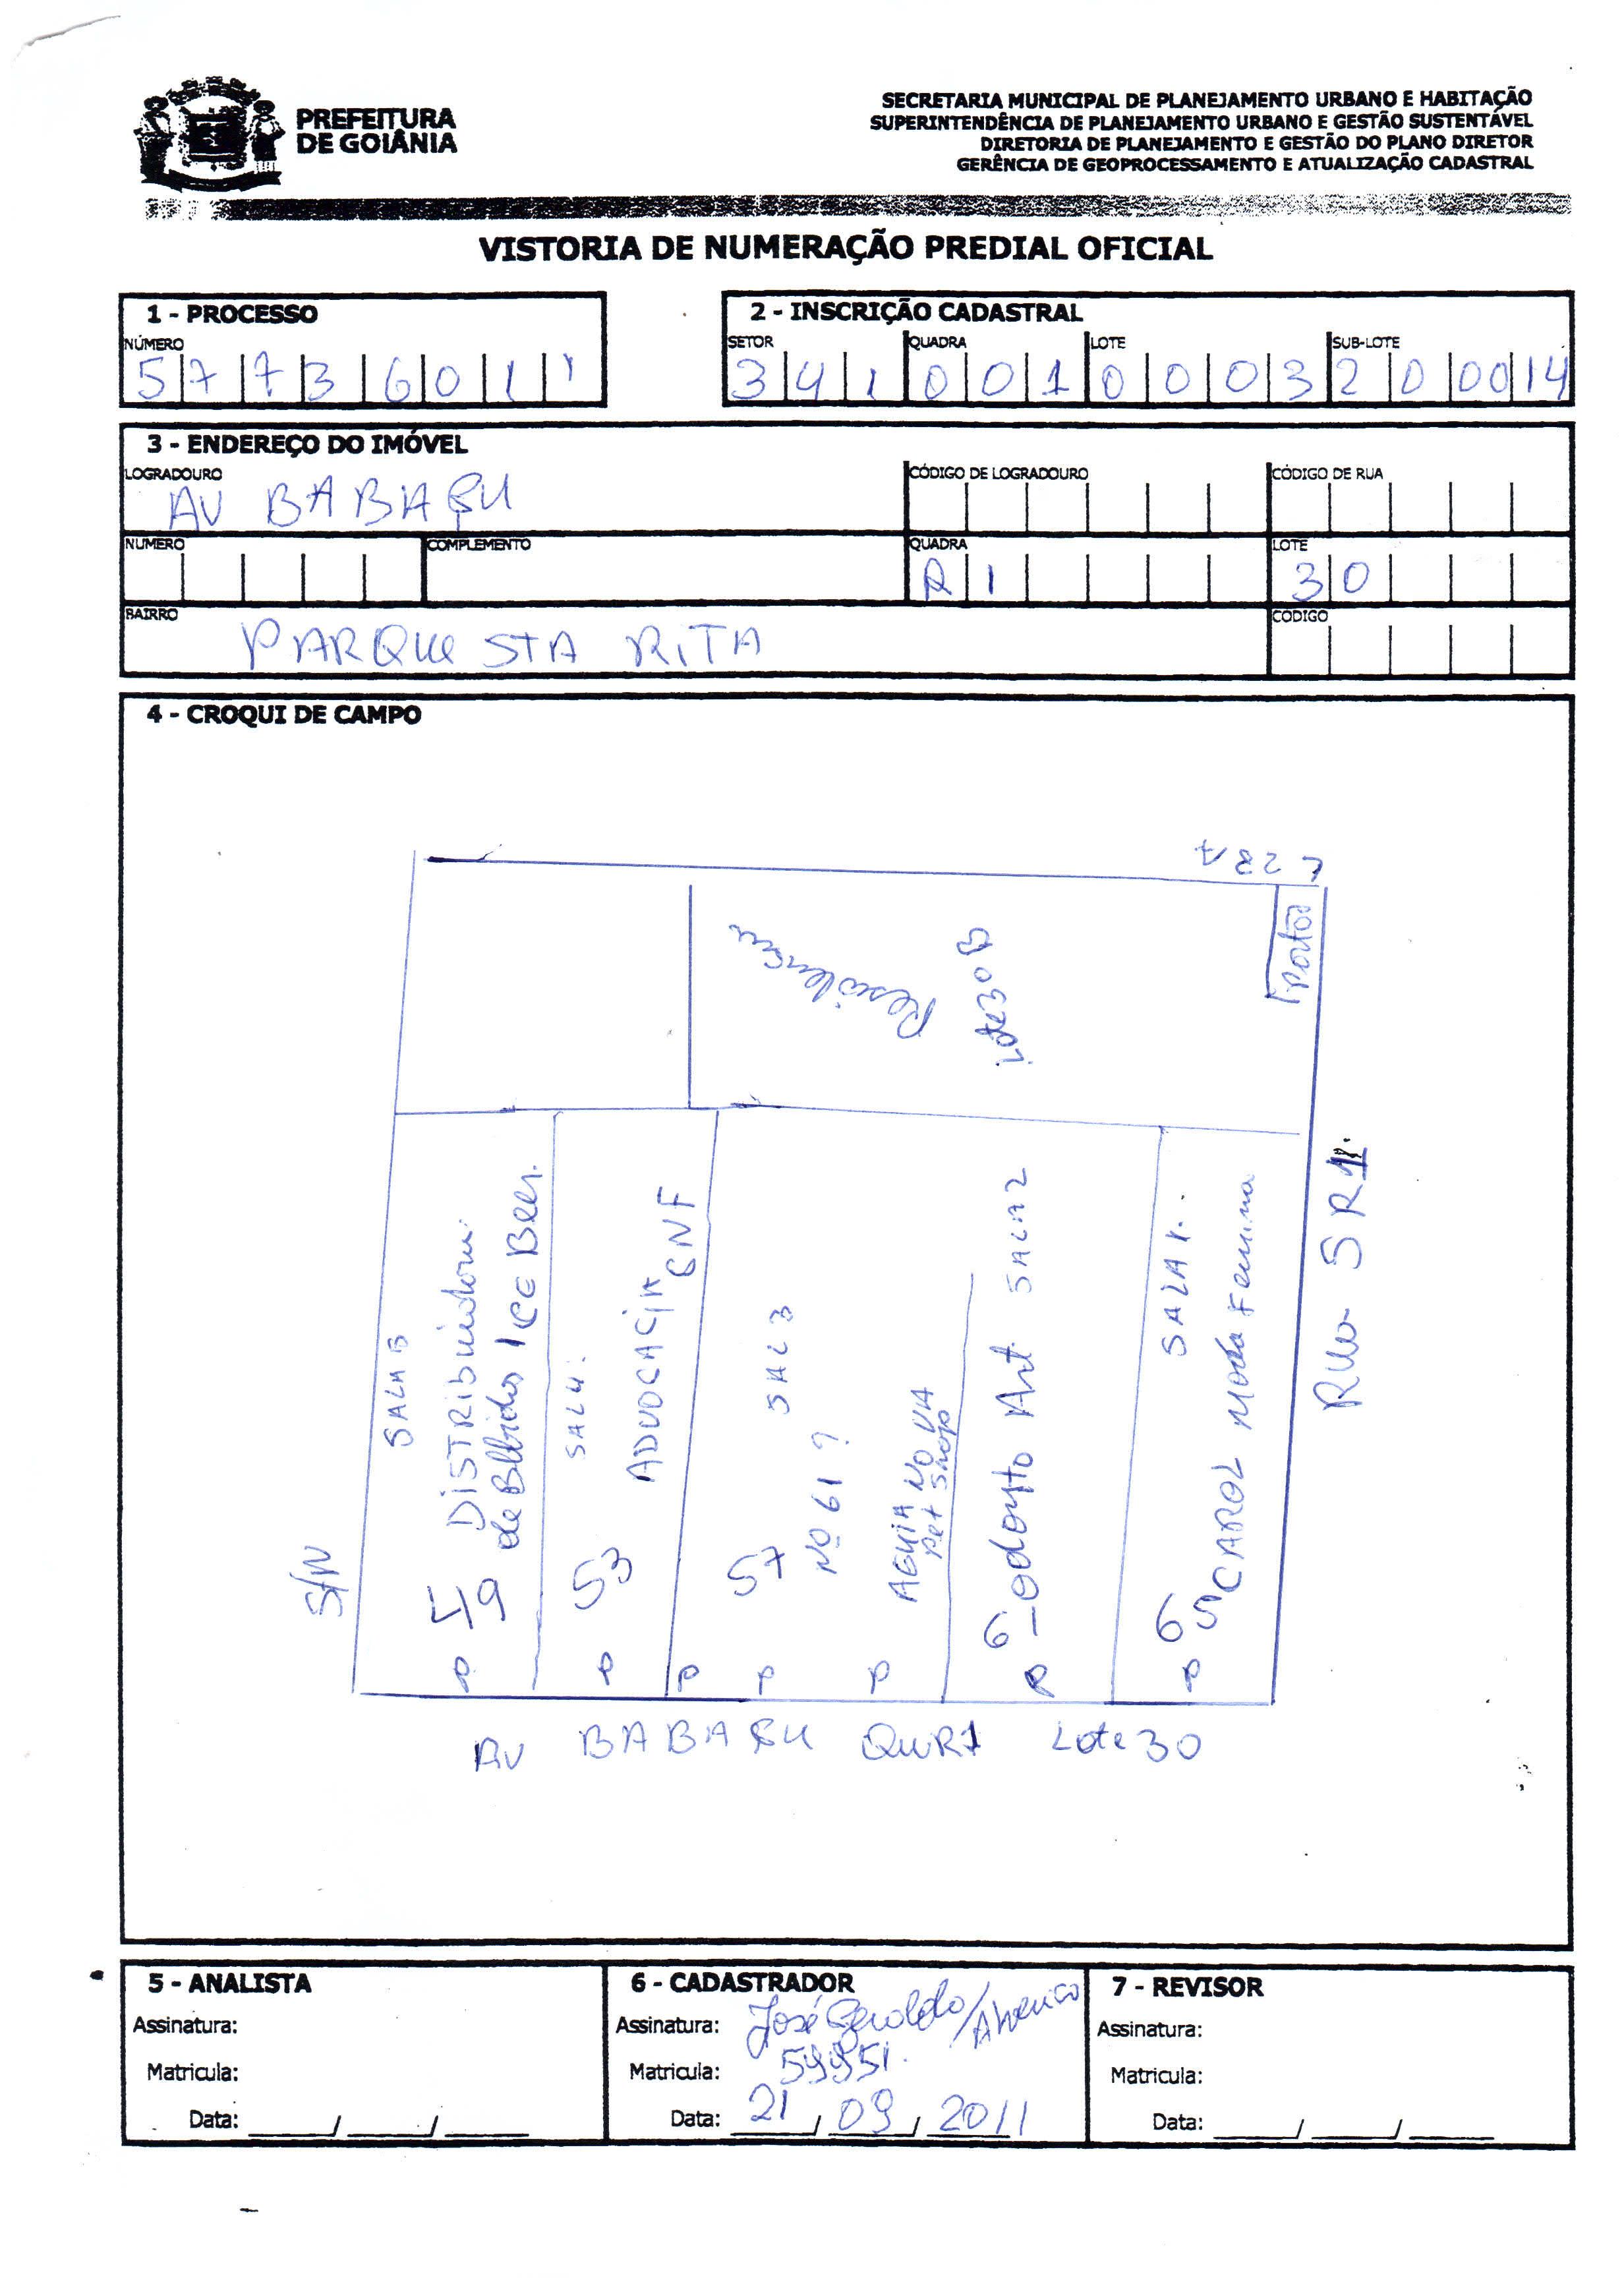 PREFEITURA
DE GOIÂNIA
SECRETARIA MUNICIPAL DE PLANEJAMENTO URBANO E HABITAÇÃO
SUPERINTENDÊNCIA DE PLANEJAMENTO URBANO E GESTÃO SUSTENTÁVEL
DIRETORIA DE PLANEJAMENTO E GESTÃO DO PLANO DIRETOR
GERÊNCIA DE GEOPROCESSAMENTO E ATUALIZAÇÃO CADASTRAL
VISTORIA DE NUMERAÇÃO PREDIAL OFICIAL
1 - PROCESSO
NÚMERO
5 7 7 3 6 0 1 1
2 - INSCRIÇÃO CADASTRAL
SETOR QUADRA LOTE SUB-LOTE
3 4 1 0 0 1 0 0 0 3 2 0 00 14
3 - ENDEREÇO DO IMÓVEL
LOGRADOURO CÓDIGO DE LOGRADOURO CÓDIGO DE RUA
AV BABAÇU
NUMERO COMPLEMENTO QUADRA LOTE
R 1 3 0
BAIRRO CODIGO
PARQUE STA RITA
4 - CROQUI DE CAMPO
L 28 A
Portão
Residencia
Lote 30 B
Rua SR1
S/N
SALA 5
DISTRIBuidora
de Bebidas ICE BEER.
49
SAL 4
ADVOCACIA
GNF
53
SAL 3
57
Nº 61 ?
AGUIA NO VA
Pet Shop
SALA 2
Odonto Art
6
SALA 1
CAROL Moda Feminina
65
P P P P P P P
AV BABAÇU QuR1 Lote 30
5 - ANALISTA
Assinatura:
Matricula:
Data: / /
6 - CADASTRADOR
Assinatura: José Geraldo/
Matricula: 59951
Data: 21 / 09 / 2011
7 - REVISOR
Assinatura:
Matricula:
Data: / /